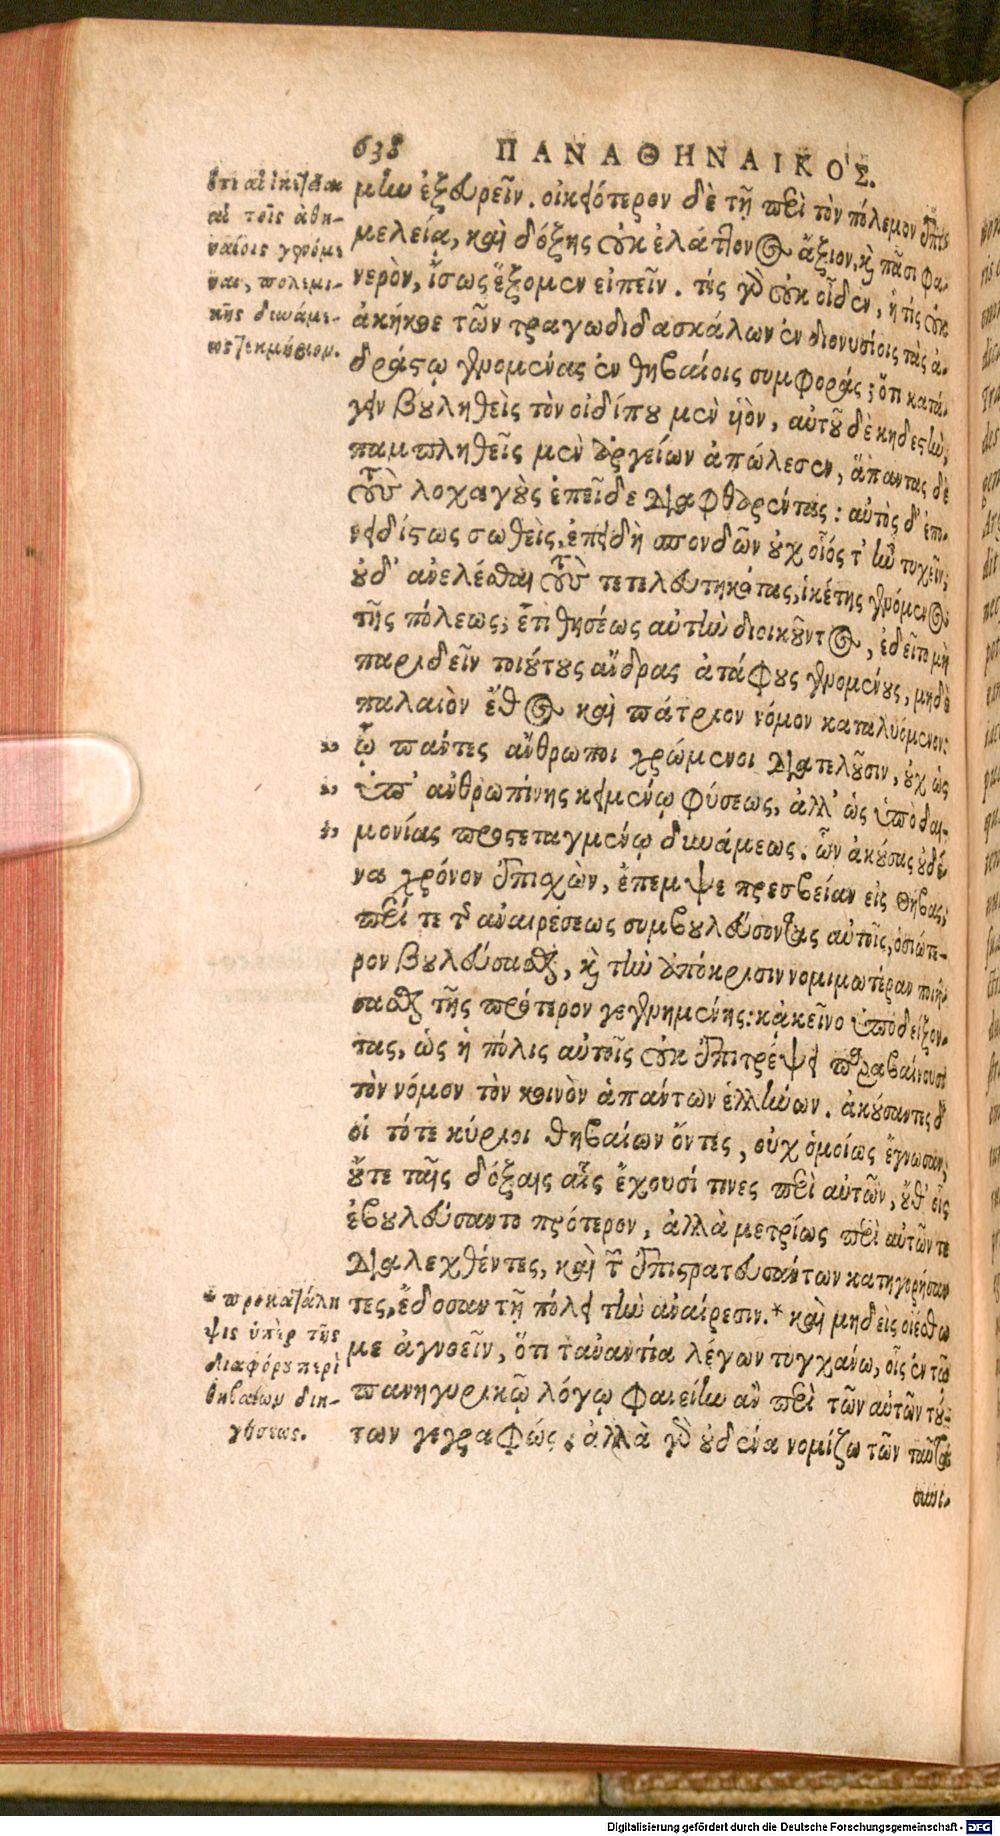 638 ΠΑΝΑΘΗΝΑΙΚΟΣ.
μὴν ἐξευρεῖν. οἰκειότερον δὲ τῇ περὶ τὸν πόλεμον ἐπι-
μελείᾳ, καὶ δόξης οὐκ ἐλάττονος ἄξιον, καὶ πᾶσι φα-
νερὸν, ἴσως ἕξομεν εἰπεῖν. τίς γὰρ οὐκ οἶδεν, ἢ τίς οὐκ
ἀκήκοε τῶν τραγωδιδασκάλων ἐν διονυσίοις τὰς ἀ-
δράστῳ γενομένας ἐν θήβαις συμφοράς; ὅτι κατά-
γειν βουληθεὶς τὸν οἰδίπου μὲν υἱὸν, αὐτοῦ δὲ κηδεστὴν,
παμπληθεῖς μὲν ἀργείων ἀπώλεσεν, ἅπαντας δὲ
τοὺς λοχαγοὺς ἐπεῖδε διαφθαρέντας: αὐτὸς δ' ἐπο-
νειδίστως σωθεὶς, ἐπειδὴ σπονδῶν οὐχ οἷός τ' ἦν τυχεῖν,
οὐδ' ἀνελέσθαι τοὺς τετελευτηκότας, ἱκέτης γενόμενος
τῆς πόλεως, ἔτι θησέως αὐτὴν διοικοῦντος, ἐδεῖτο μὴ
παριδεῖν τοιούτους ἄνδρας ἀτάφους γενομένους, μηδὲ
παλαιὸν ἔθος καὶ πάτριον νόμον καταλυόμενον:
ᾧ πάντες ἄνθρωποι χρώμενοι διατελοῦσιν, οὐχ ὡς
ὑπ' ἀνθρωπίνης κειμένῳ φύσεως, ἀλλ' ὡς ὑπὸ δαι-
μονίας προστεταγμένῳ δυνάμεως. ὧν ἀκούσας οὐδέ-
να χρόνον ἐπισχὼν, ἔπεμψε πρεσβείαν εἰς θήβας,
περί τε τῆς ἀναιρέσεως συμβουλεύσοντας αὐτοῖς, ὁσιώτε-
ρον βουλεύσασθαι, καὶ τὴν ἀπόκρισιν νομιμωτέραν ποιή-
σασθαι τῆς πρότερον γεγενημένης: κἀκεῖνο ὑποδείξον-
τας, ὡς ἡ πόλις αὐτοῖς οὐκ ἐπιτρέψει παραβαίνουσι
τὸν νόμον τὸν κοινὸν ἁπάντων ἑλλήνων. ἀκούσαντες δ'
οἱ τότε κύριοι θηβαίων ὄντες, οὐχ ὁμοίως ἔγνωσαν,
οὔτε ταῖς δόξαις αἷς ἔχουσί τινες περὶ αὐτῶν, οὔθ' οἷς
ἐβουλεύσαντο πρότερον, ἀλλὰ μετρίως περὶ αὑτῶν τε
διαλεχθέντες, καὶ τῶν ἐπιστρατευσάντων κατηγορήσαν-
τες, ἔδοσαν τῇ πόλει τὴν ἀναίρεσιν.* καὶ μηδεὶς οἰέσθω
με ἀγνοεῖν, ὅτι τἀναντία λέγων τυγχάνω, οἷς ἐν τῷ
πανηγυρικῷ λόγῳ φανείην ἂν περὶ τῶν αὐτῶν τού-
των γεγραφώς. ἀλλὰ γὰρ οὐδένα νομίζω τῶν ταῦτα
συνι-
ὅτι αἱ ἱκετεῖαι
αἱ τοῖς ἀθη-
ναίοις γενόμε
ναι, πολεμι-
κῆς δυνάμε-
ως τεκμήριον.
* προκατάλη
ψις ὑπὲρ τῆς
διαφόρου περὶ
θηβαίων διη-
γήσεως.
Digitalisierung gefördert durch die Deutsche Forschungsgemeinschaft - DFG